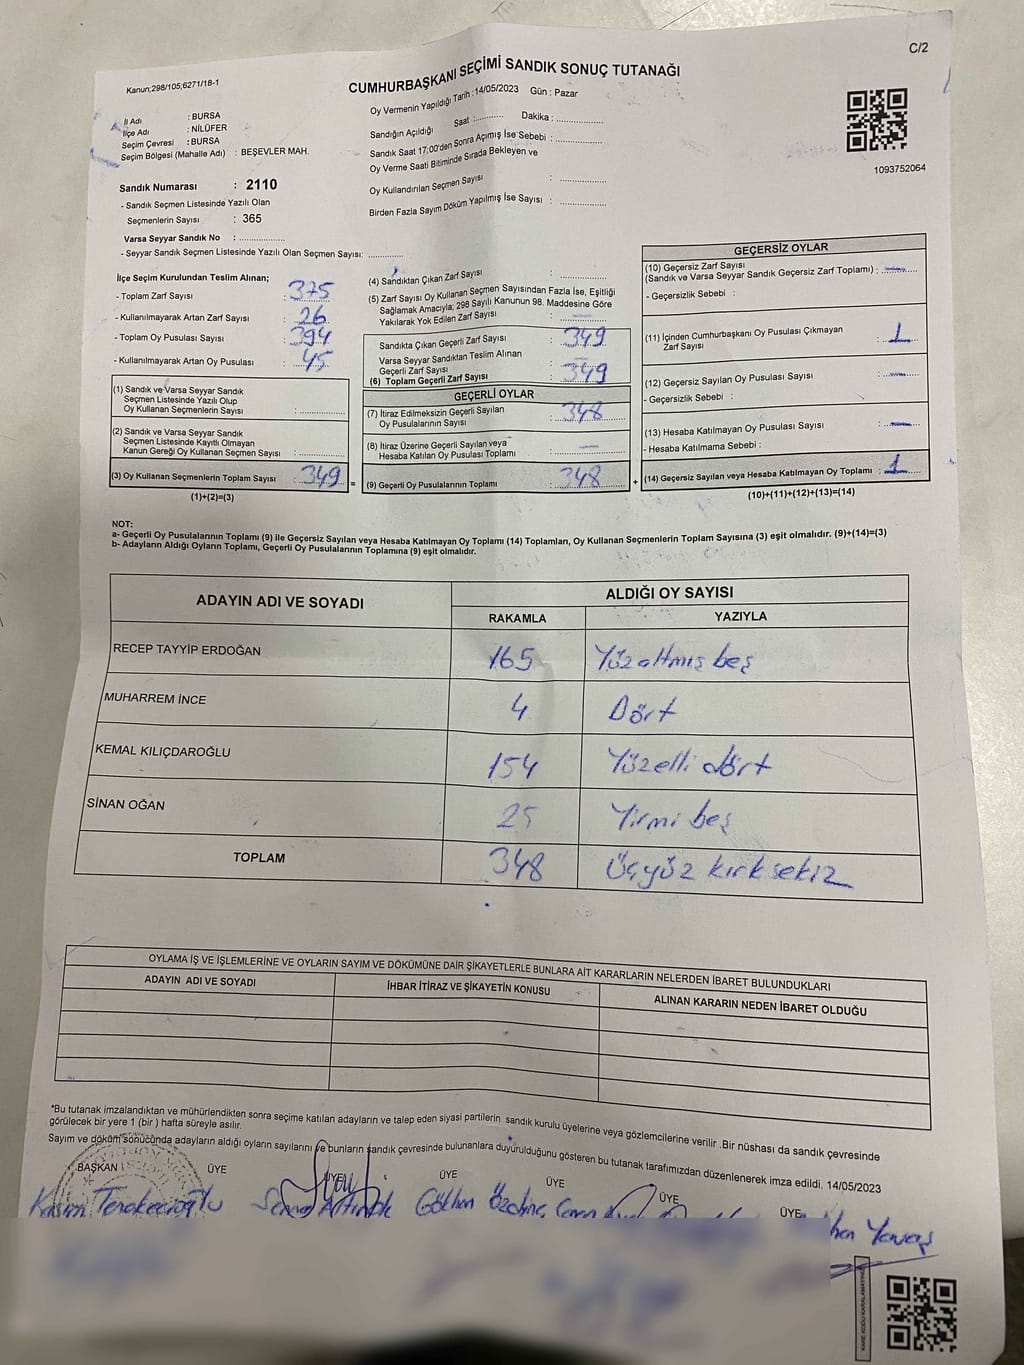 C/2
Kanun;298/105;6271/18-1
CUMHURBAŞKANI SEÇİMİ SANDIK SONUÇ TUTANAĞI
Oy Vermenin Yapıldığı Tarih :14/05/2023 Gün : Pazar
İl Adı : BURSA
İlçe Adı : NİLÜFER
Seçim Çevresi : BURSA
Seçim Bölgesi (Mahalle Adı) : BEŞEVLER MAH.
Sandık Numarası : 2110
- Sandık Seçmen Listesinde Yazılı Olan
Seçmenlerin Sayısı : 365
Varsa Seyyar Sandık No : ..............
- Seyyar Sandık Seçmen Listesinde Yazılı Olan Seçmen Sayısı: ............
Sandığın Açıldığı Saat :.......... Dakika : ..............
Sandık Saat 17:00'den Sonra Açımış İse Sebebi : ..............
Oy Verme Saati Bitiminde Sırada Bekleyen ve
Oy Kullandırılan Seçmen Sayısı : ..............
Birden Fazla Sayım Döküm Yapılmış İse Sayısı : ..............
1093752064
İlçe Seçim Kurulundan Teslim Alınan;
- Toplam Zarf Sayısı : 375
- Kullanılmayarak Artan Zarf Sayısı : 26
- Toplam Oy Pusulası Sayısı : 394
- Kullanılmayarak Artan Oy Pusulası : 45
(1) Sandık ve Varsa Seyyar Sandık
Seçmen Listesinde Yazılı Olup
Oy Kullanan Seçmenlerin Sayısı : ..............
(2) Sandık ve Varsa Seyyar Sandık
Seçmen Listesinde Kayıtlı Olmayan
Kanun Gereği Oy Kullanan Seçmen Sayısı : ..............
(3) Oy Kullanan Seçmenlerin Toplam Sayısı : 349 =
(1)+(2)=(3)
(4) Sandıktan Çıkan Zarf Sayısı : ..............
(5) Zarf Sayısı Oy Kullanan Seçmen Sayısından Fazla İse, Eşitliği
Sağlamak Amacıyla; 298 Sayılı Kanunun 98. Maddesine Göre
Yakılarak Yok Edilen Zarf Sayısı : —
Sandıkta Çıkan Geçerli Zarf Sayısı : 349
Varsa Seyyar Sandıktan Teslim Alınan
Geçerli Zarf Sayısı : —
(6) Toplam Geçerli Zarf Sayısı : 349
GEÇERLİ OYLAR
(7) İtiraz Edilmeksizin Geçerli Sayılan
Oy Pusulalarının Sayısı : 348
(8) İtiraz Üzerine Geçerli Sayılan veya
Hesaba Katılan Oy Pusulası Toplamı : —
(9) Geçerli Oy Pusulalarının Toplamı : 348 +
GEÇERSİZ OYLAR
(10) Geçersiz Zarf Sayısı
(Sandık ve Varsa Seyyar Sandık Geçersiz Zarf Toplamı) : —
- Geçersizlik Sebebi :
(11) İçinden Cumhurbaşkanı Oy Pusulası Çıkmayan
Zarf Sayısı : 1
(12) Geçersiz Sayılan Oy Pusulası Sayısı : —
- Geçersizlik Sebebi :
(13) Hesaba Katılmayan Oy Pusulası Sayısı : —
- Hesaba Katılmama Sebebi :
(14) Geçersiz Sayılan veya Hesaba Katılmayan Oy Toplamı : 1
(10)+(11)+(12)+(13)=(14)
NOT:
a- Geçerli Oy Pusulalarının Toplamı (9) ile Geçersiz Sayılan veya Hesaba Katılmayan Oy Toplamı (14) Toplamları, Oy Kullanan Seçmenlerin Toplam Sayısına (3) eşit olmalıdır. (9)+(14)=(3)
b- Adayların Aldığı Oyların Toplamı, Geçerli Oy Pusulalarının Toplamına (9) eşit olmalıdır.
ADAYIN ADI VE SOYADI ALDIĞI OY SAYISI
RAKAMLA YAZIYLA
RECEP TAYYİP ERDOĞAN 165 Yüzaltmış beş
MUHARREM İNCE 4 Dört
KEMAL KILIÇDAROĞLU 154 Yüzelli dört
SİNAN OĞAN 25 Yirmi beş
TOPLAM 348 Üçyüz kırk sekiz
OYLAMA İŞ VE İŞLEMLERİNE VE OYLARIN SAYIM VE DÖKÜMÜNE DAİR ŞİKAYETLERLE BUNLARA AİT KARARLARIN NELERDEN İBARET BULUNDUKLARI
ADAYIN ADI VE SOYADI İHBAR İTİRAZ VE ŞİKAYETİN KONUSU ALINAN KARARIN NEDEN İBARET OLDUĞU
*Bu tutanak imzalandıktan ve mühürlendikten sonra seçime katılan adayların ve talep eden siyasi partilerin sandık kurulu üyelerine veya gözlemcilerine verilir .Bir nüshası da sandık çevresinde
görülecek bir yere 1 (bir ) hafta süreyle asılır.
Sayım ve döküm sonucunda adayların aldığı oyların sayılarını ve bunların sandık çevresinde bulunanlara duyurulduğunu gösteren bu tutanak tarafımızdan düzenlenerek imza edildi. 14/05/2023
BAŞKAN ÜYE ÜYE ÜYE ÜYE ÜYE ÜYE
Kasım Gökhan Yavaş
KARE KODU KARALAMAYINIZ